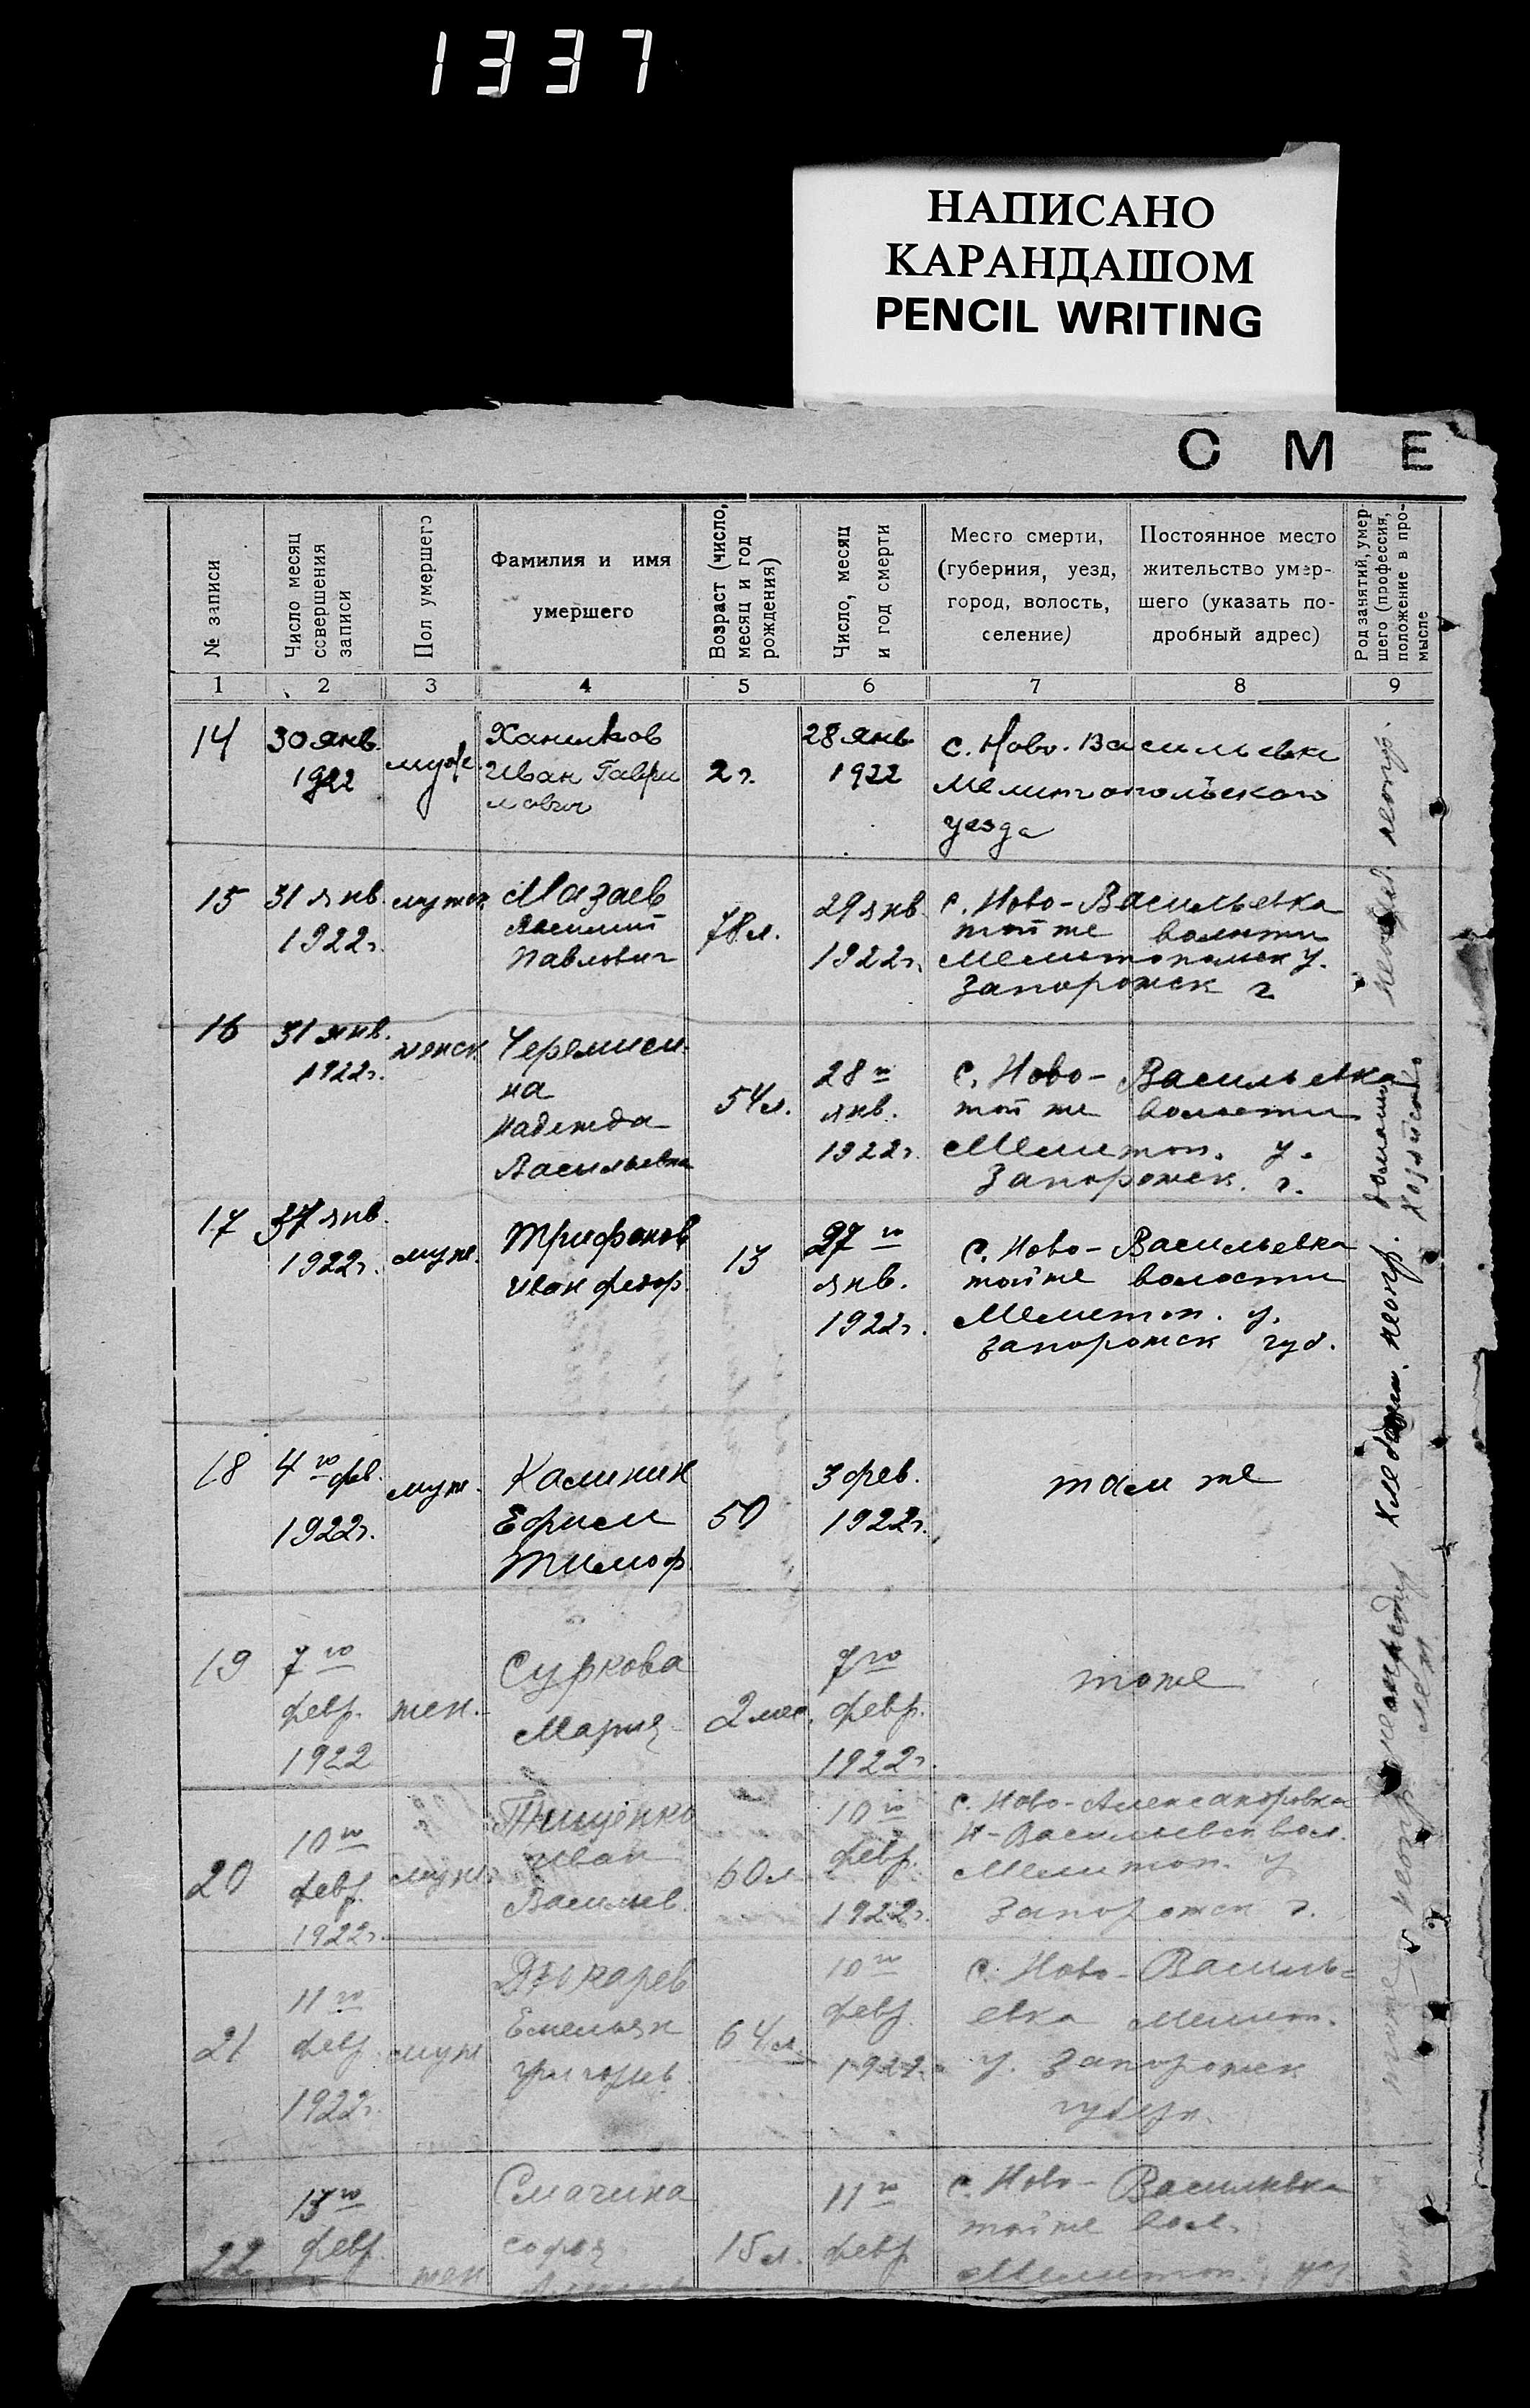 1337
НАПИСАНО
КАРАНДАШОМ
PENCIL WRITING
С М Е
№ записи
Число месяц
совершения
записи
Пол умершего
Фамилия и имя
умершего
Возраст (число,
месяц и год
рождения)
Число, месяц
и год смерти
Место смерти,
(губерния, уезд,
город, волость,
селение)
Постоянное место
жительство умер-
шего (указать по-
дробный адрес)
Род занятий, умер-
шего (профессия,
положение в про-
мысле
1 2 3 4 5 6 7 8 9
14
30 янв.
1922
муж.
Иван Гаври
лович
2 г.
28 янв
1922
с. Ново-Васильевка
Мелитопольского
уезда
неопр.
15
31 янв.
1922г.
мужск
Мазаев
Василий
Павлович
78 л.
29 янв.
1922г.
с. Ново-Васильевка
той же волости
Мелитопольск у.
Запорожск г
16
31 янв.
1922г.
женск
Черемиси-
на
Надежда
Васильевна
54 л.
28го
янв.
1922г.
с. Ново-Васильевка
той же волости
Мелитоп. у.
Запорожск. г.
домашн.
хозяйство
17
31 янв.
1922г.
муж.
Трифонов
Иван Федор.
13
27го
янв.
1922г.
с. Ново-Васильевка
той же волости
Мелитоп. у.
Запорожск губ.
неопр.
18
4го фев.
1922г.
муж.
Калинин
Ефим
Тимоф.
50
3 фев.
1922г.
там же
19
7го
февр.
1922
жен.
Суркова
Мария
2 мес.
7го
февр.
1922г.
тоже
20
10го
февр.
1922г.
муж.
Тищенко
Иван
Васильев.
60 л.
10го
февр.
1922г.
с. Ново-Александровка
Н-Васильевск вол.
Мелитоп. у
Запорожск г.
неопр.
21
11го
февр
1922г.
муж
Емельян
Григорьев.
64 л.
10го
февр.
1922.
с. Ново-Василь-
евка Мелит.
у. Запорожск
губерн.
22
13го
февр.
жен
Смагина
Софья
15 л.
11го
февр
с. Ново-Васильевка
той же вол.
Мелитоп. уез